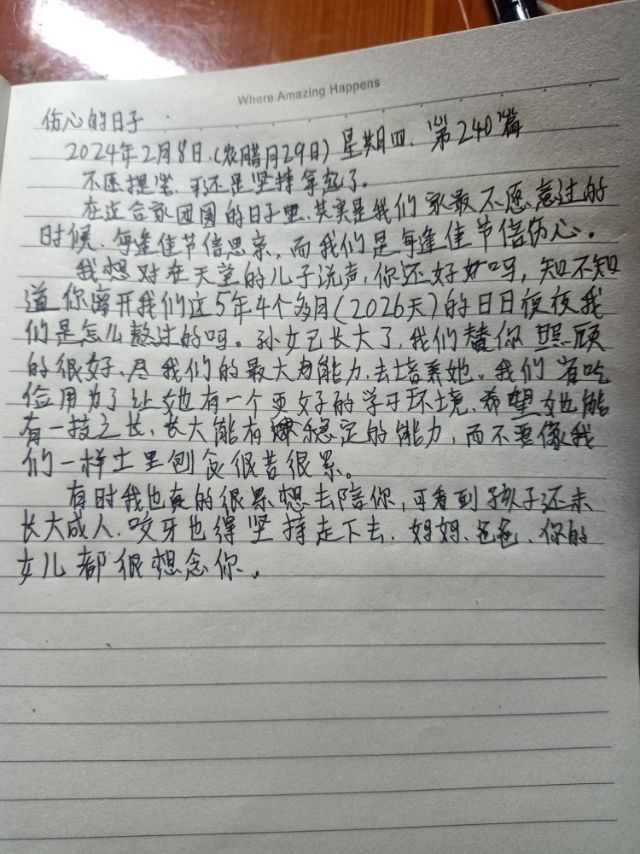 Where Amazing Happens
伤心的日子
2024年2月8日.(农腊月29日) 星期四. 第240篇
不愿提笔. 可还是坚持拿起了.
在这合家团圆的日子里.其实是我们家最不愿意过的
时候.每逢佳节倍思亲,而我们是每逢佳节倍伤心。
我想对在天堂的儿子说声,你还好好吗,知不知
道你离开我们这5年4个多月(2026天)的日日夜夜我
们是怎么熬过的吗。孙女已长大了,我们替你照顾
的很好.尽我们的最大为能力.去培养她.我们省吃
俭用为了让她有一个更好的学习环境.希望她能
有一技之长.长大能有稳定的能力,而不要像我
们一样土里刨食很苦很累。
有时我也真的很累想去陪你,可看到孩子还未
长大成人.咬牙也得坚持走下去.妈妈.爸爸.你的
女儿都很想念你.